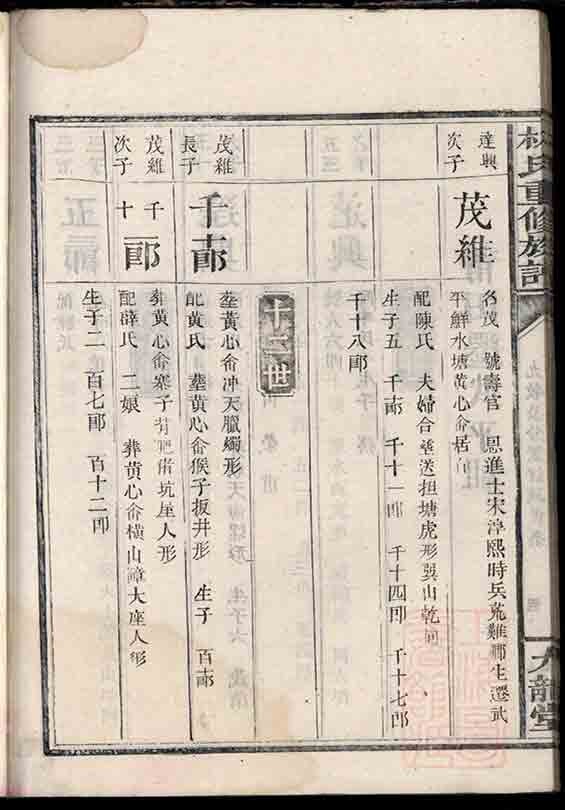 林氏重修族譜
九龍堂
達興
次子
茂維
名茂 號壽官 恩進士宋淳熙時兵荒難鄉生遷武
平鮮水塘黃心畬居
配陳氏 夫婦合塟送担塘虎形巽山乾向
生子五 千 千十一郎 千十四郎 千十七郎
千十八郎
十三世
茂維
長子
千
塟黃心畬冲天臘燭形
配黃氏 塟黃心畬猴子扳井形 生子 百
茂維
次子
千十郎
葬黃心畬寨子背 坑座人形
配薛氏 二娘 葬黃心畬橫山 大座人形
生子二 百七郎 百十二郎